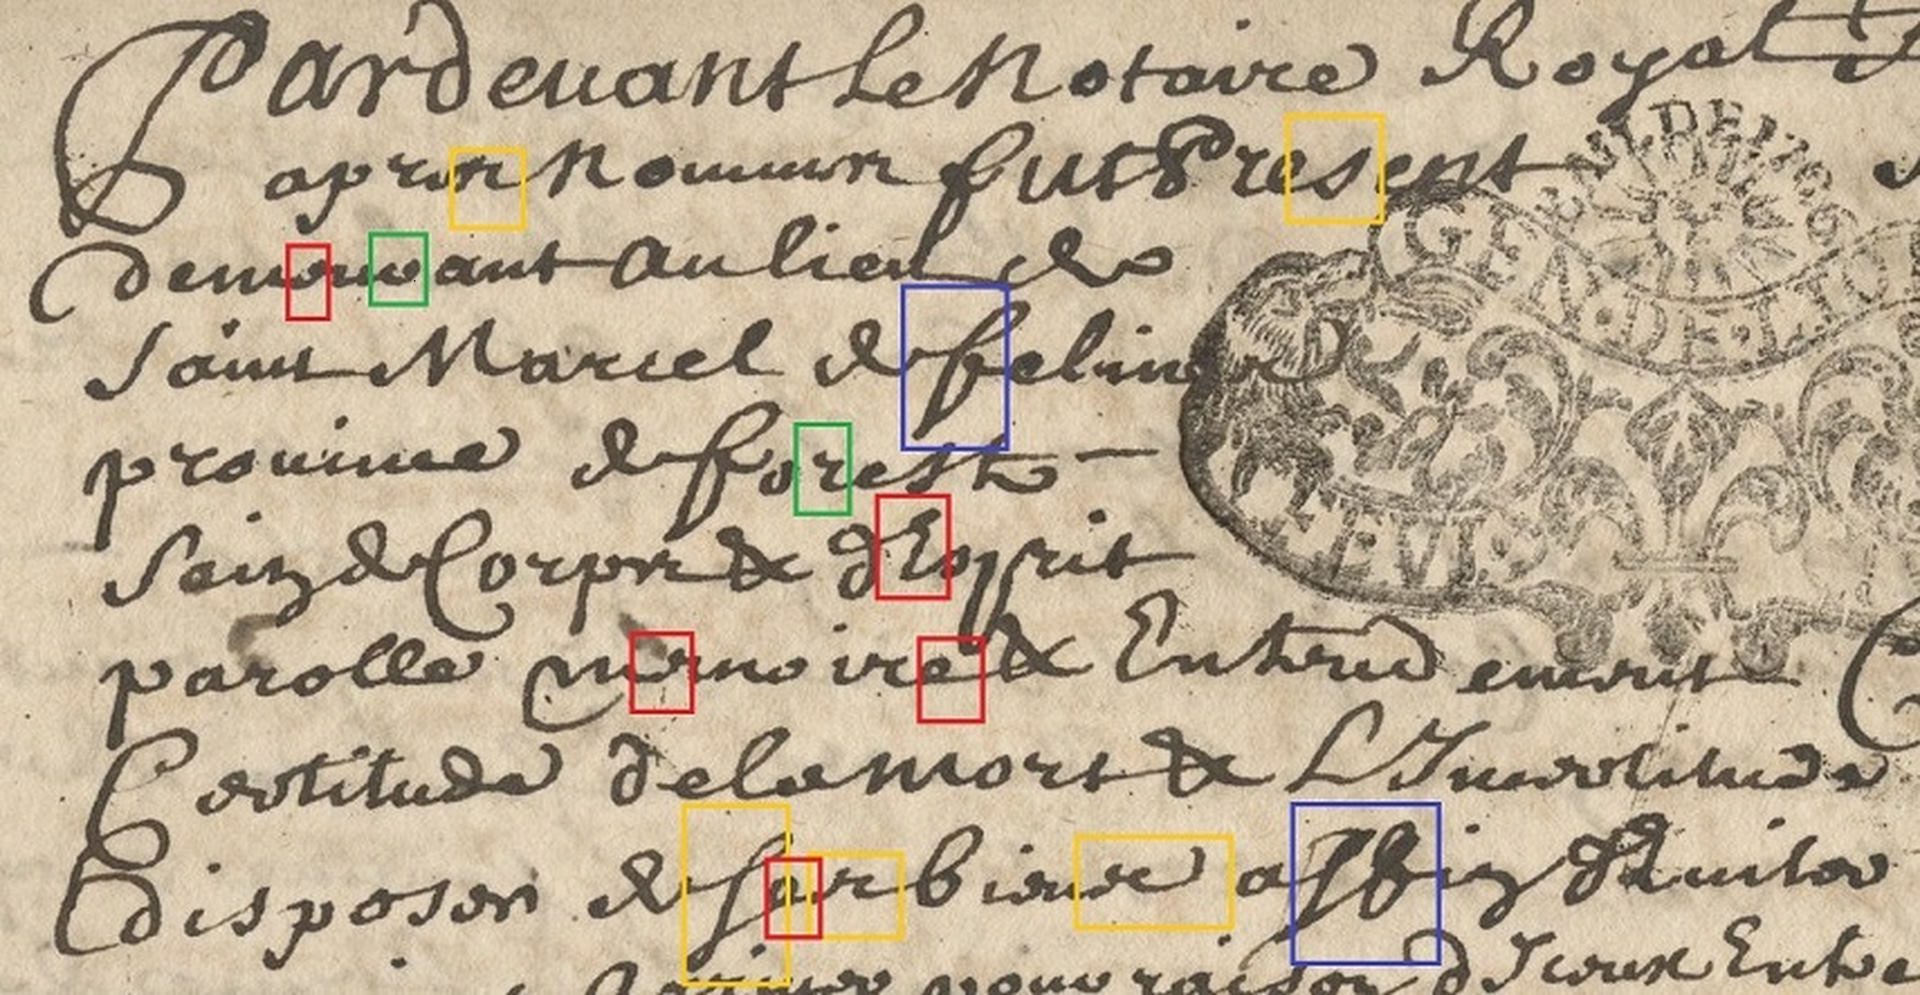 Pardeuant Le Notaire Royal
apres Nommes fut Present
demeurant au lieu de
Saint Marcel de felines
prouince de forest
Sain de Corps & d'Esprit
parolle memoire & Entendement
Certitude de la mort & L'Incertitude
disposer de ses biens affin d'euiter
pour raison d'Iceux Entre
GEN·DE·LION